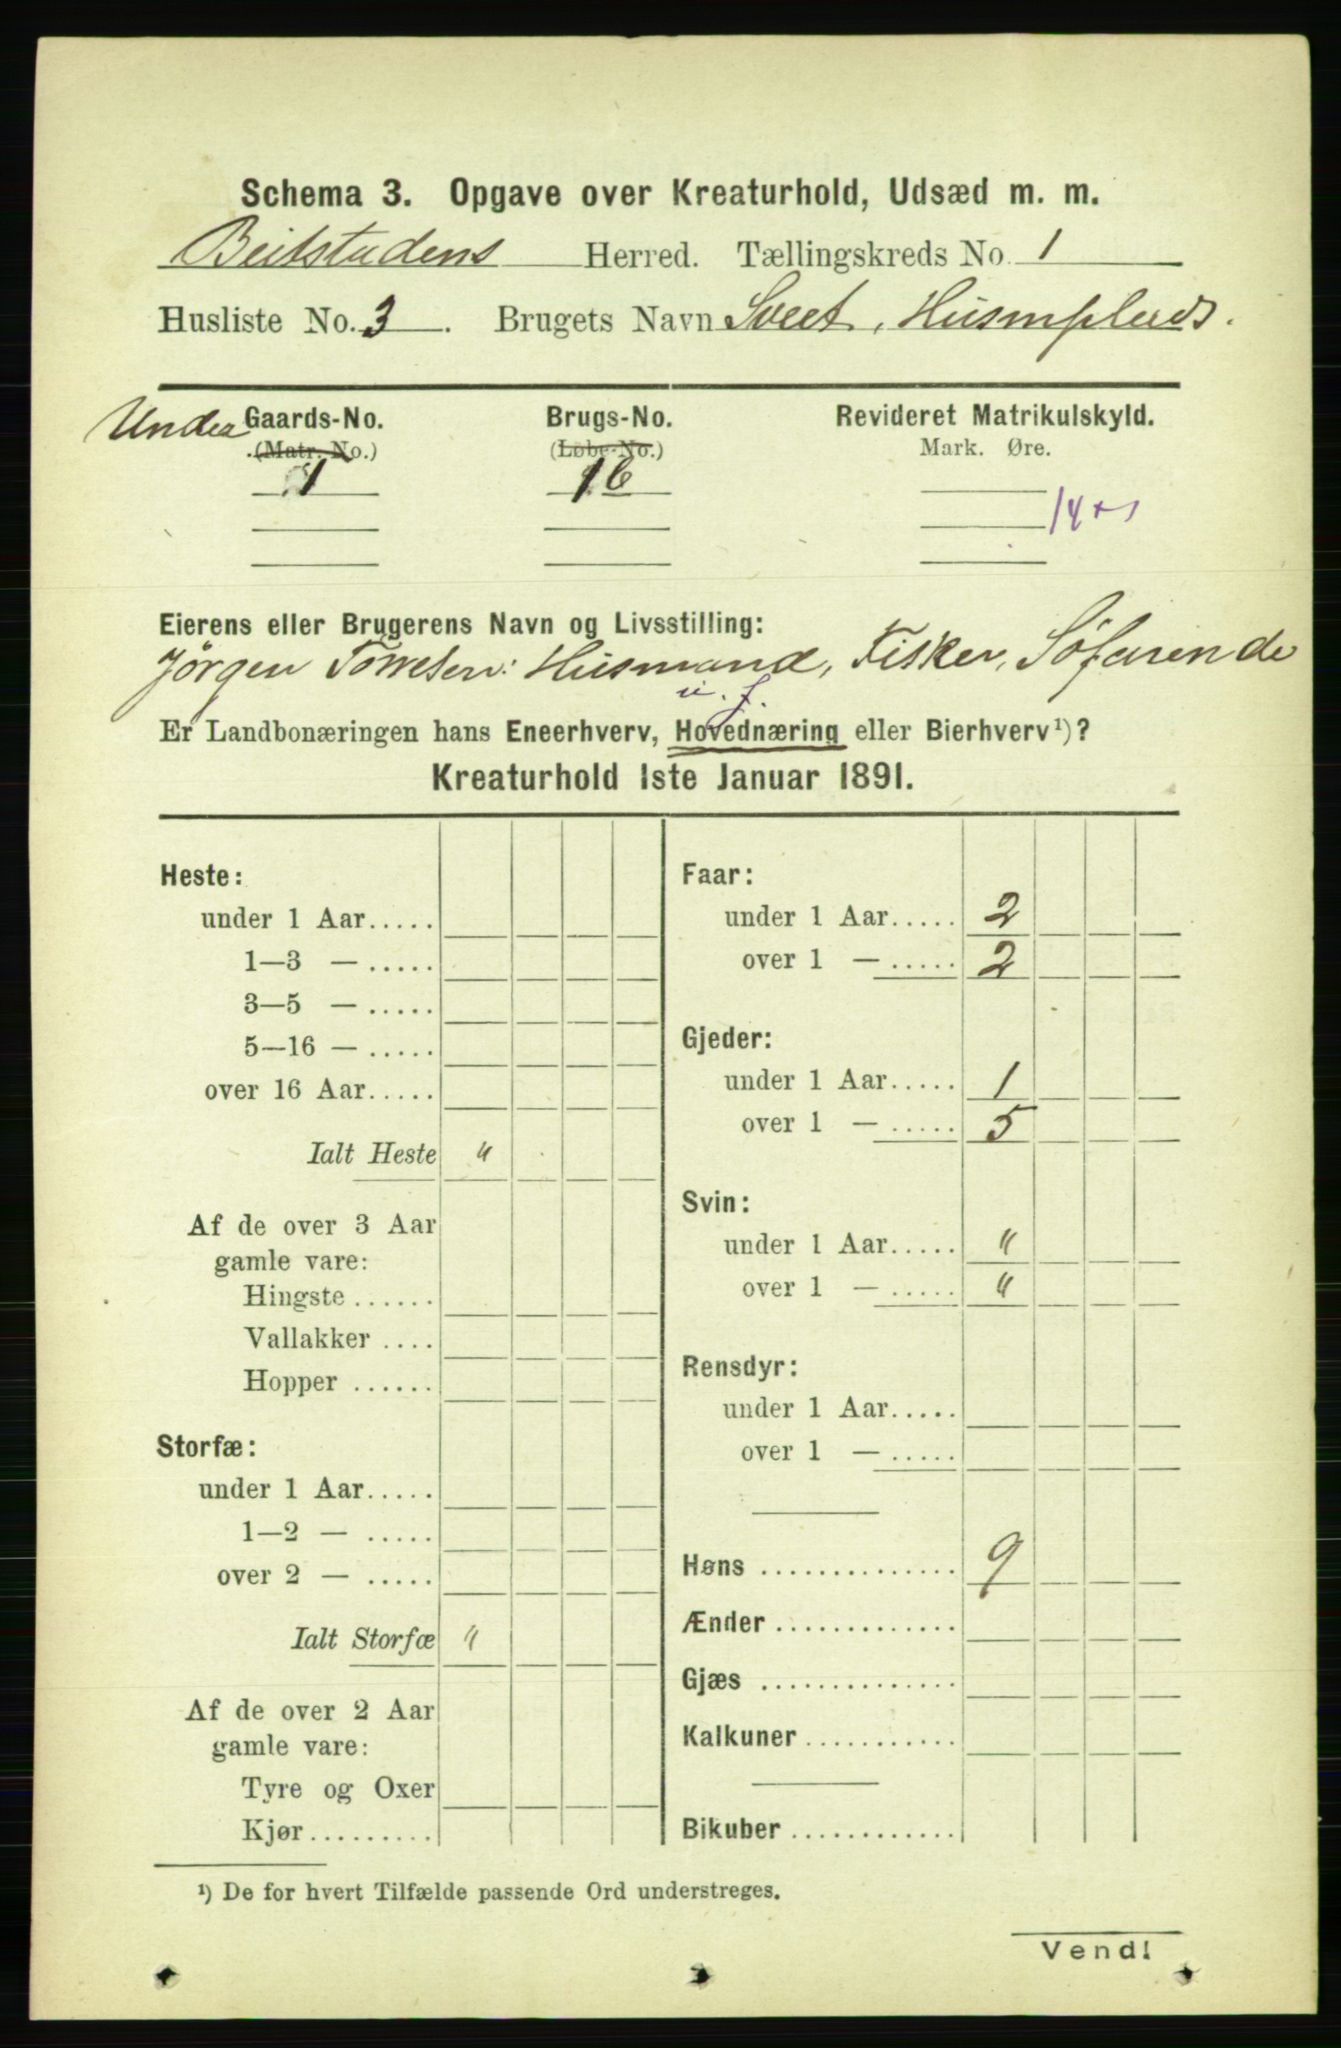 Schema 3. Opgave over Kreaturhold, Udsæd m. m.
Beitstadens Herred. Tællingskreds No. 1
Husliste No. 3. Brugets Navn Sveet, Husmplads.
Under Gaards-No. Brugs-No. Revideret Matrikulskyld.
(Matr. No.) (Løbe-No.) Mark. Øre.
1 16
14
Eierens eller Brugerens Navn og Livsstilling:
Jörgen Torresen: Husmand, Fisker, Söfarende
u. f.
Er Landbonæringen hans Eneerhverv, Hovednæring eller Bierhverv¹)?
Kreaturhold 1ste Januar 1891.
Heste:
under 1 Aar.....
1—3 — .....
3—5 — .....
5—16 — .....
over 16 Aar.....
Ialt Heste "
Af de over 3 Aar
gamle vare:
Hingste ......
Vallakker ....
Hopper ......
Storfæ:
under 1 Aar.....
1—2 — .....
over 2 — .....
Ialt Storfæ "
Af de over 2 Aar
gamle vare:
Tyre og Oxer
Kjør.........
Faar:
under 1 Aar..... 2
over 1 — ..... 2
Gjeder:
under 1 Aar..... 1
over 1 — ..... 5
Svin:
under 1 Aar..... "
over 1 — ..... "
Rensdyr:
under 1 Aar.....
over 1 — .....
Høns .............. 9
Ænder .............
Gjæs ..............
Kalkuner ...........
Bikuber .............
¹) De for hvert Tilfælde passende Ord understreges.
Vend!